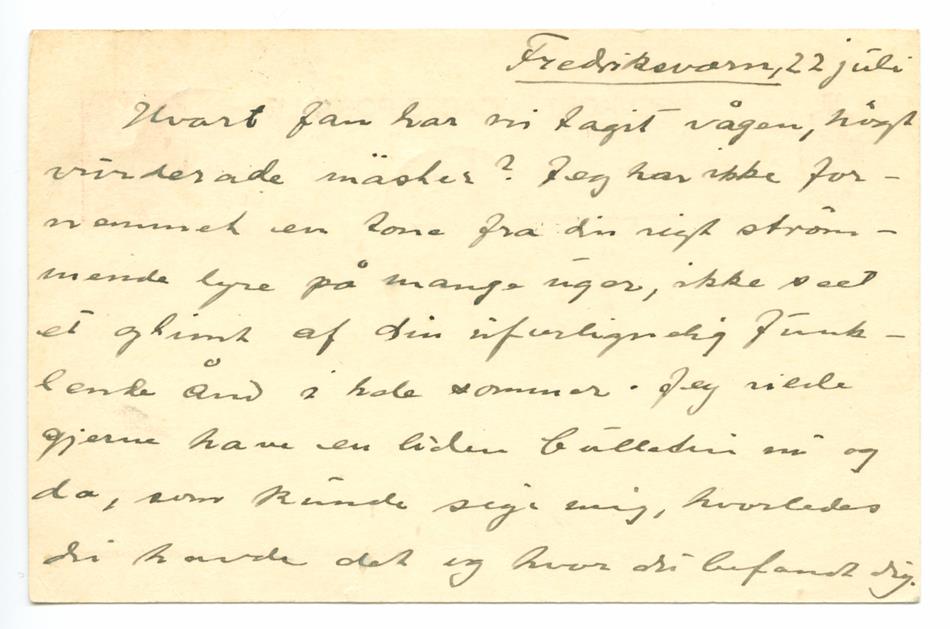 Fredriksværn, 22 juli
Hvart fan har ni tagit vägen, högt
värderade mäster? Jeg har ikke for-
nemmet en tone fra din rigt ström-
mende lyre på mange uger, ikke seet
et glimt af din uforlignelig funk-
lende ånd i hele sommer. Jeg vilde
gjerne have en liden bulletin nu og
da, som kunde sige mig, hvorledes
du havde det og hvor du befandt dig.